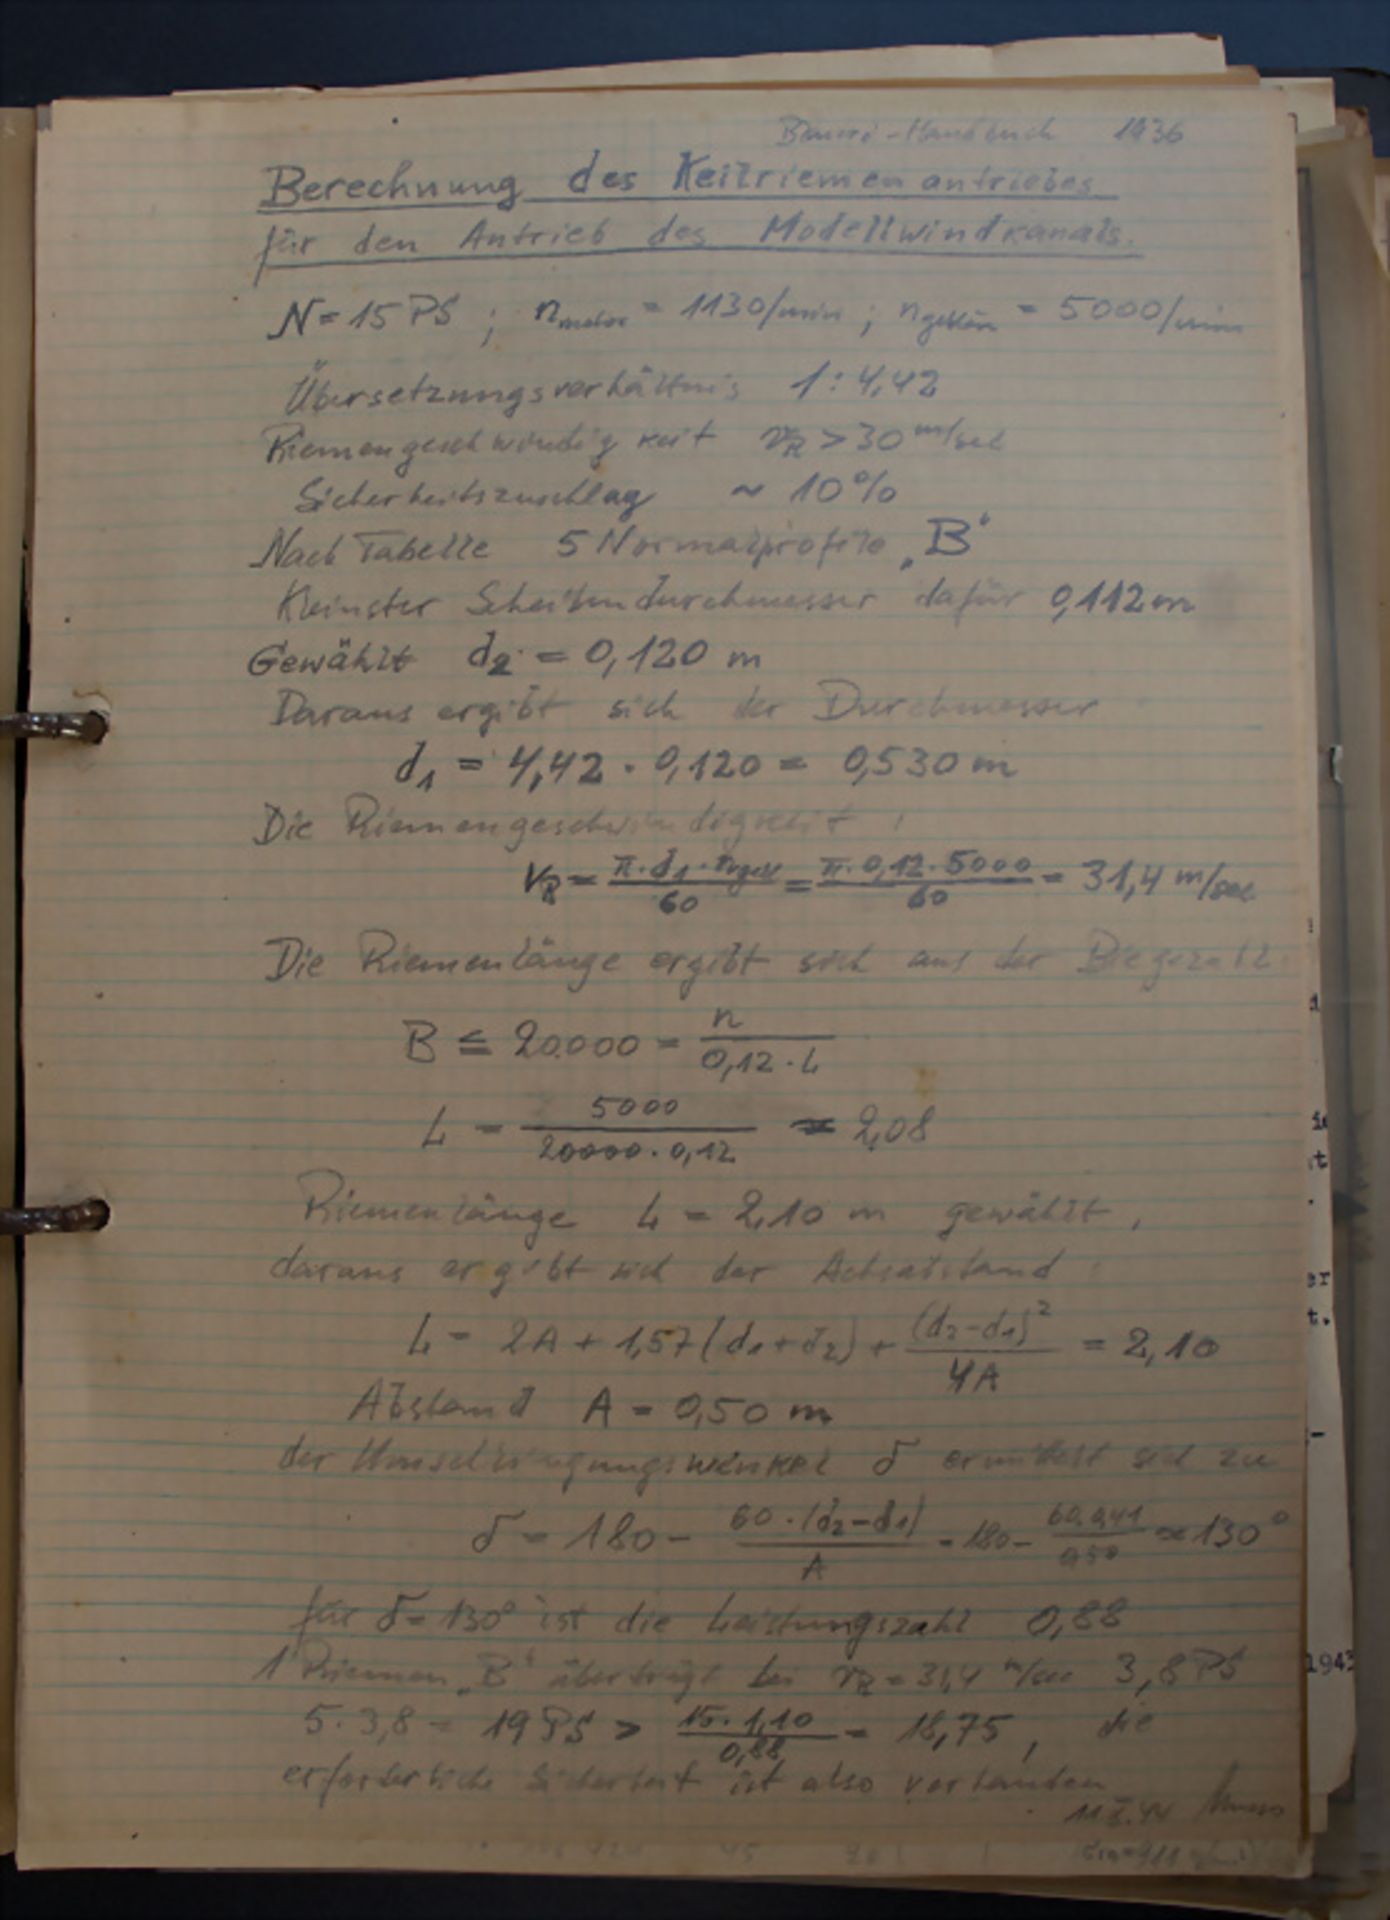 Handbuch 1936
Berechnung des Keilriemenantriebes
für den Antrieb des Modellwindkanals.
N = 15 PS ; n motor = 1130/min ; n gebläse = 5000/min
Übersetzungsverhältnis 1 : 4,42
Riemengeschwindigkeit vR > 30 m/sec
Sicherheitszuschlag ~ 10%
Nach Tabelle 5 Normalprofile „B“
Kleinster Scheibendurchmesser dafür 0,112 m
Gewählt d2 = 0,120 m
Daraus ergibt sich der Durchmesser
d1 = 4,42 · 0,120 = 0,530 m
Die Riemengeschwindigkeit :
VR = π · d1 · ngebl / 60 = π · 0,12 · 5000 / 60 = 31,4 m/sec
Die Riemenlänge ergibt sich aus der Biegezahl
B ≦ 20.000 = n / 0,12 · L
L = 5000 / 20000 · 0,12 ≈ 2,08
Riemenlänge L = 2,10 m gewählt,
daraus ergibt sich der Achsabstand :
L = 2A + 1,57 (d1 + d2) + (d2 - d1)² / 4A = 2,10
Abstand A = 0,50 m
der Umschlingungswinkel δ ermittelt sich zu
δ = 180 - 60 · (d2 - d1) / A = 180 - 60 · 0,41 / 0,50 ≈ 130°
für δ = 130° ist die Leistungszahl 0,88
1 Riemen „B“ überträgt bei vR = 31,4 m/sec 3,8 PS
5 · 3,8 = 19 PS > 15 · 1,10 / 0,88 = 18,75 , die
erforderliche Sicherheit ist also vorhanden
1943